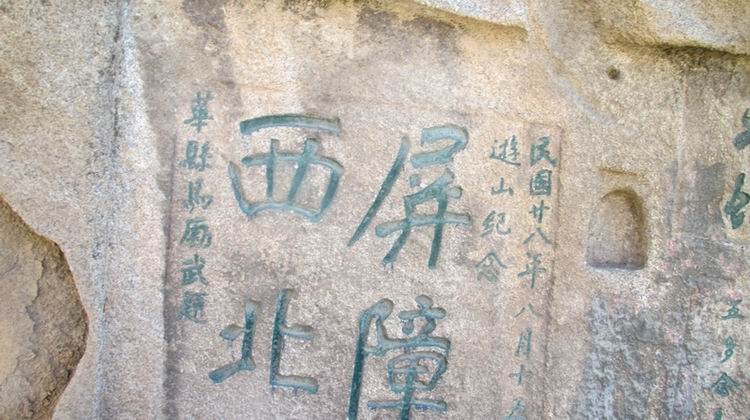 民國廿八年八月十
遊山紀念
屏障
西北
華縣馬勵武題